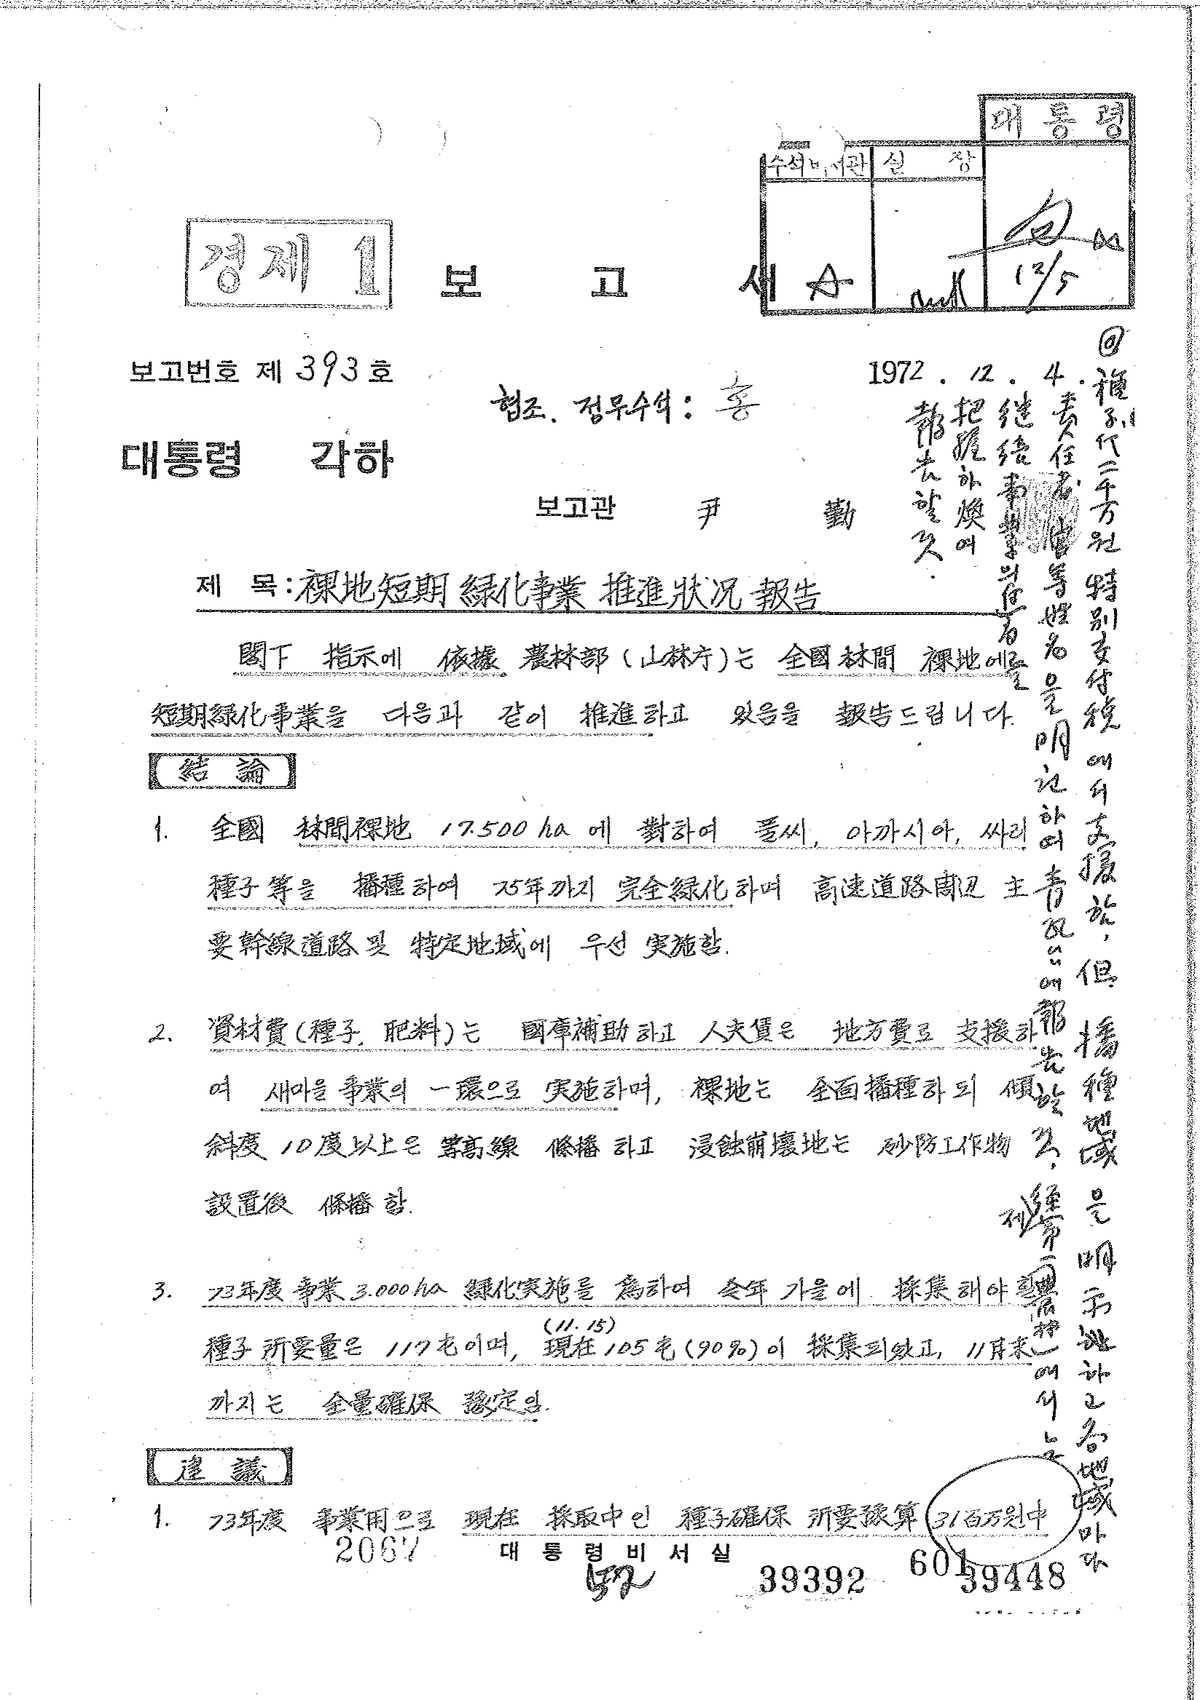 대통령
수석비서관 실장
12/5
경제 1
보고서
보고번호 제 393 호
1972. 12. 4.
협조. 정무수석: 홍
대통령 각하
보고관 尹 勤
제 목: 裸地短期 綠化事業 推進狀况 報告
閣下 指示에 依據 農林部(山林庁)는 全國林間 裸地에
短期綠化事業을 다음과 같이 推進하고 있음을 報告드립니다.
結論
1. 全國 林間裸地 17.500 ha 에 對하여 풀씨, 아까시아, 싸리
種子等을 播種하여 75年까지 完全綠化하며 高速道路周辺 主
要幹線道路 및 特定地域에 우선 実施함.
2. 資材費(種子, 肥料)는 國庫補助하고 人夫賃은 地方費로 支援하
여 새마을事業의 一環으로 実施하며, 裸地는 全面播種하되 傾
斜度 10度以上은 等高線 條播하고 浸蝕崩壞地는 砂防工作物
設置後 條播함.
3. 73年度 事業 3.000ha 綠化実施를 爲하여 今年 가을에 採集해야 할
種子 所要量은 117屯이며, 現在(11.15) 105屯(90%)이 採集되었고, 11月末
까지는 全量確保 豫定임.
建議
1. 73年度 事業用으로 現在 採取中인 種子確保 所要豫算 31百万원中
種子代 二千万원 特別交付稅에서 支援함. 但, 播種地域을 明示하고 各地域마다
責任者 等 姓名을 明記하여 靑瓦台에 報告할 것.
継続 事業의
把握하여
報告할 것.
2067
대통령비서실
39392
601
39448